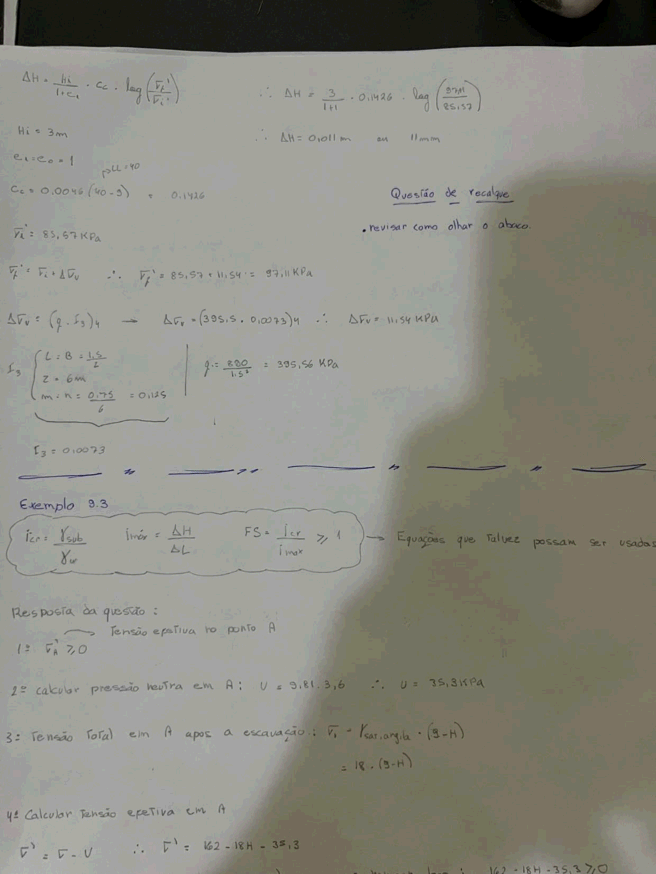 ΔH = Hi/(1+e₁) · Cc · log(σf'/σi')
∴ ΔH = 3/(1+1) · 0,1426 · log(97,11/85,57)
Hi = 3m
∴ ΔH = 0,011 m ou 11mm
e₁ = e₀ = 1
LL = 40
Cc = 0,0046 · (40-9) = 0,1426
Questão de recalque
. revisar como olhar o abaco.
σi' = 85,57 KPa
σf' = σi + Δσv ∴ σf' = 85,57 + 11,54 = 97,11 KPa
Δσv = (q · I₃)4 → Δσv = (395,5 · 0,0073)4 ∴ Δσv = 11,54 KPa
I₃ { L = B = 1,5/2
Z = 6m
m = n = 0,75/6 = 0,125
q = 890/1,5² = 395,56 KPa
I₃ = 0,0073
Exemplo 9.3
icr = γsub/γw imáx = ΔH/ΔL FS = icr/imax ≥ 1 → Equações que talvez possam ser usadas
Resposta da questão:
→ Tensão efetiva no ponto A
1º σA' ≥ 0
2º calcular pressão neutra em A: U = 9,81 · 3,6 ∴ U = 35,3 KPa
3º Tensão Total em A apos a escavação: σ = γsat,argila · (9-H)
= 18 · (9-H)
4º Calcular Tensão efetiva em A
σ' = σ - U ∴ σ' = 162 - 18H - 35,3
162 - 18H - 35,3 ≥ 0